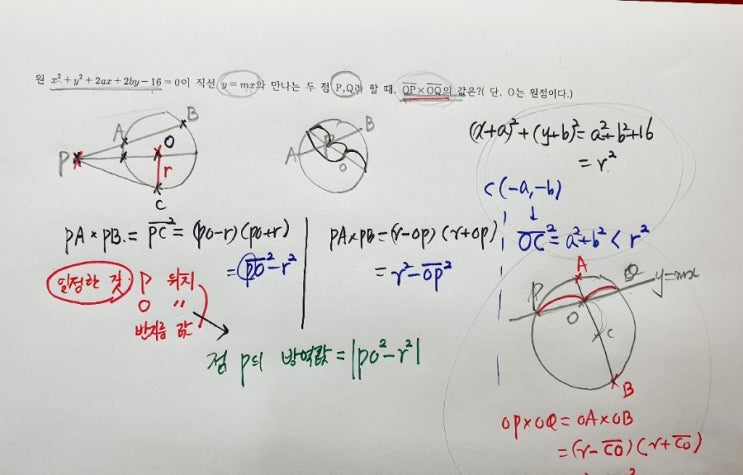 원 x²+y²+2ax+2by-16=0이 직선 y=mx와 만나는 두 점 P,Q라 할 때, OP×OQ의 값은?( 단, O는 원점이다.)
A B
P O
r
C
A B
P
O
(x+a)²+(y+b)²=a²+b²+16
=r²
C(-a,-b)
↓
OC²=a²+b²<r²
PA×PB.=PC²=(PO-r)(PO+r)
=PO²-r²
PA×PB=(r-OP)(r+OP)
=r²-OP²
일정한 것 P 위치
O 〃
반지름 값
점 P의 방역값=|PO²-r²|
A
P Q y=mx
O
C
B
OP×OQ=OA×OB
=(r-CO)(r+CO)